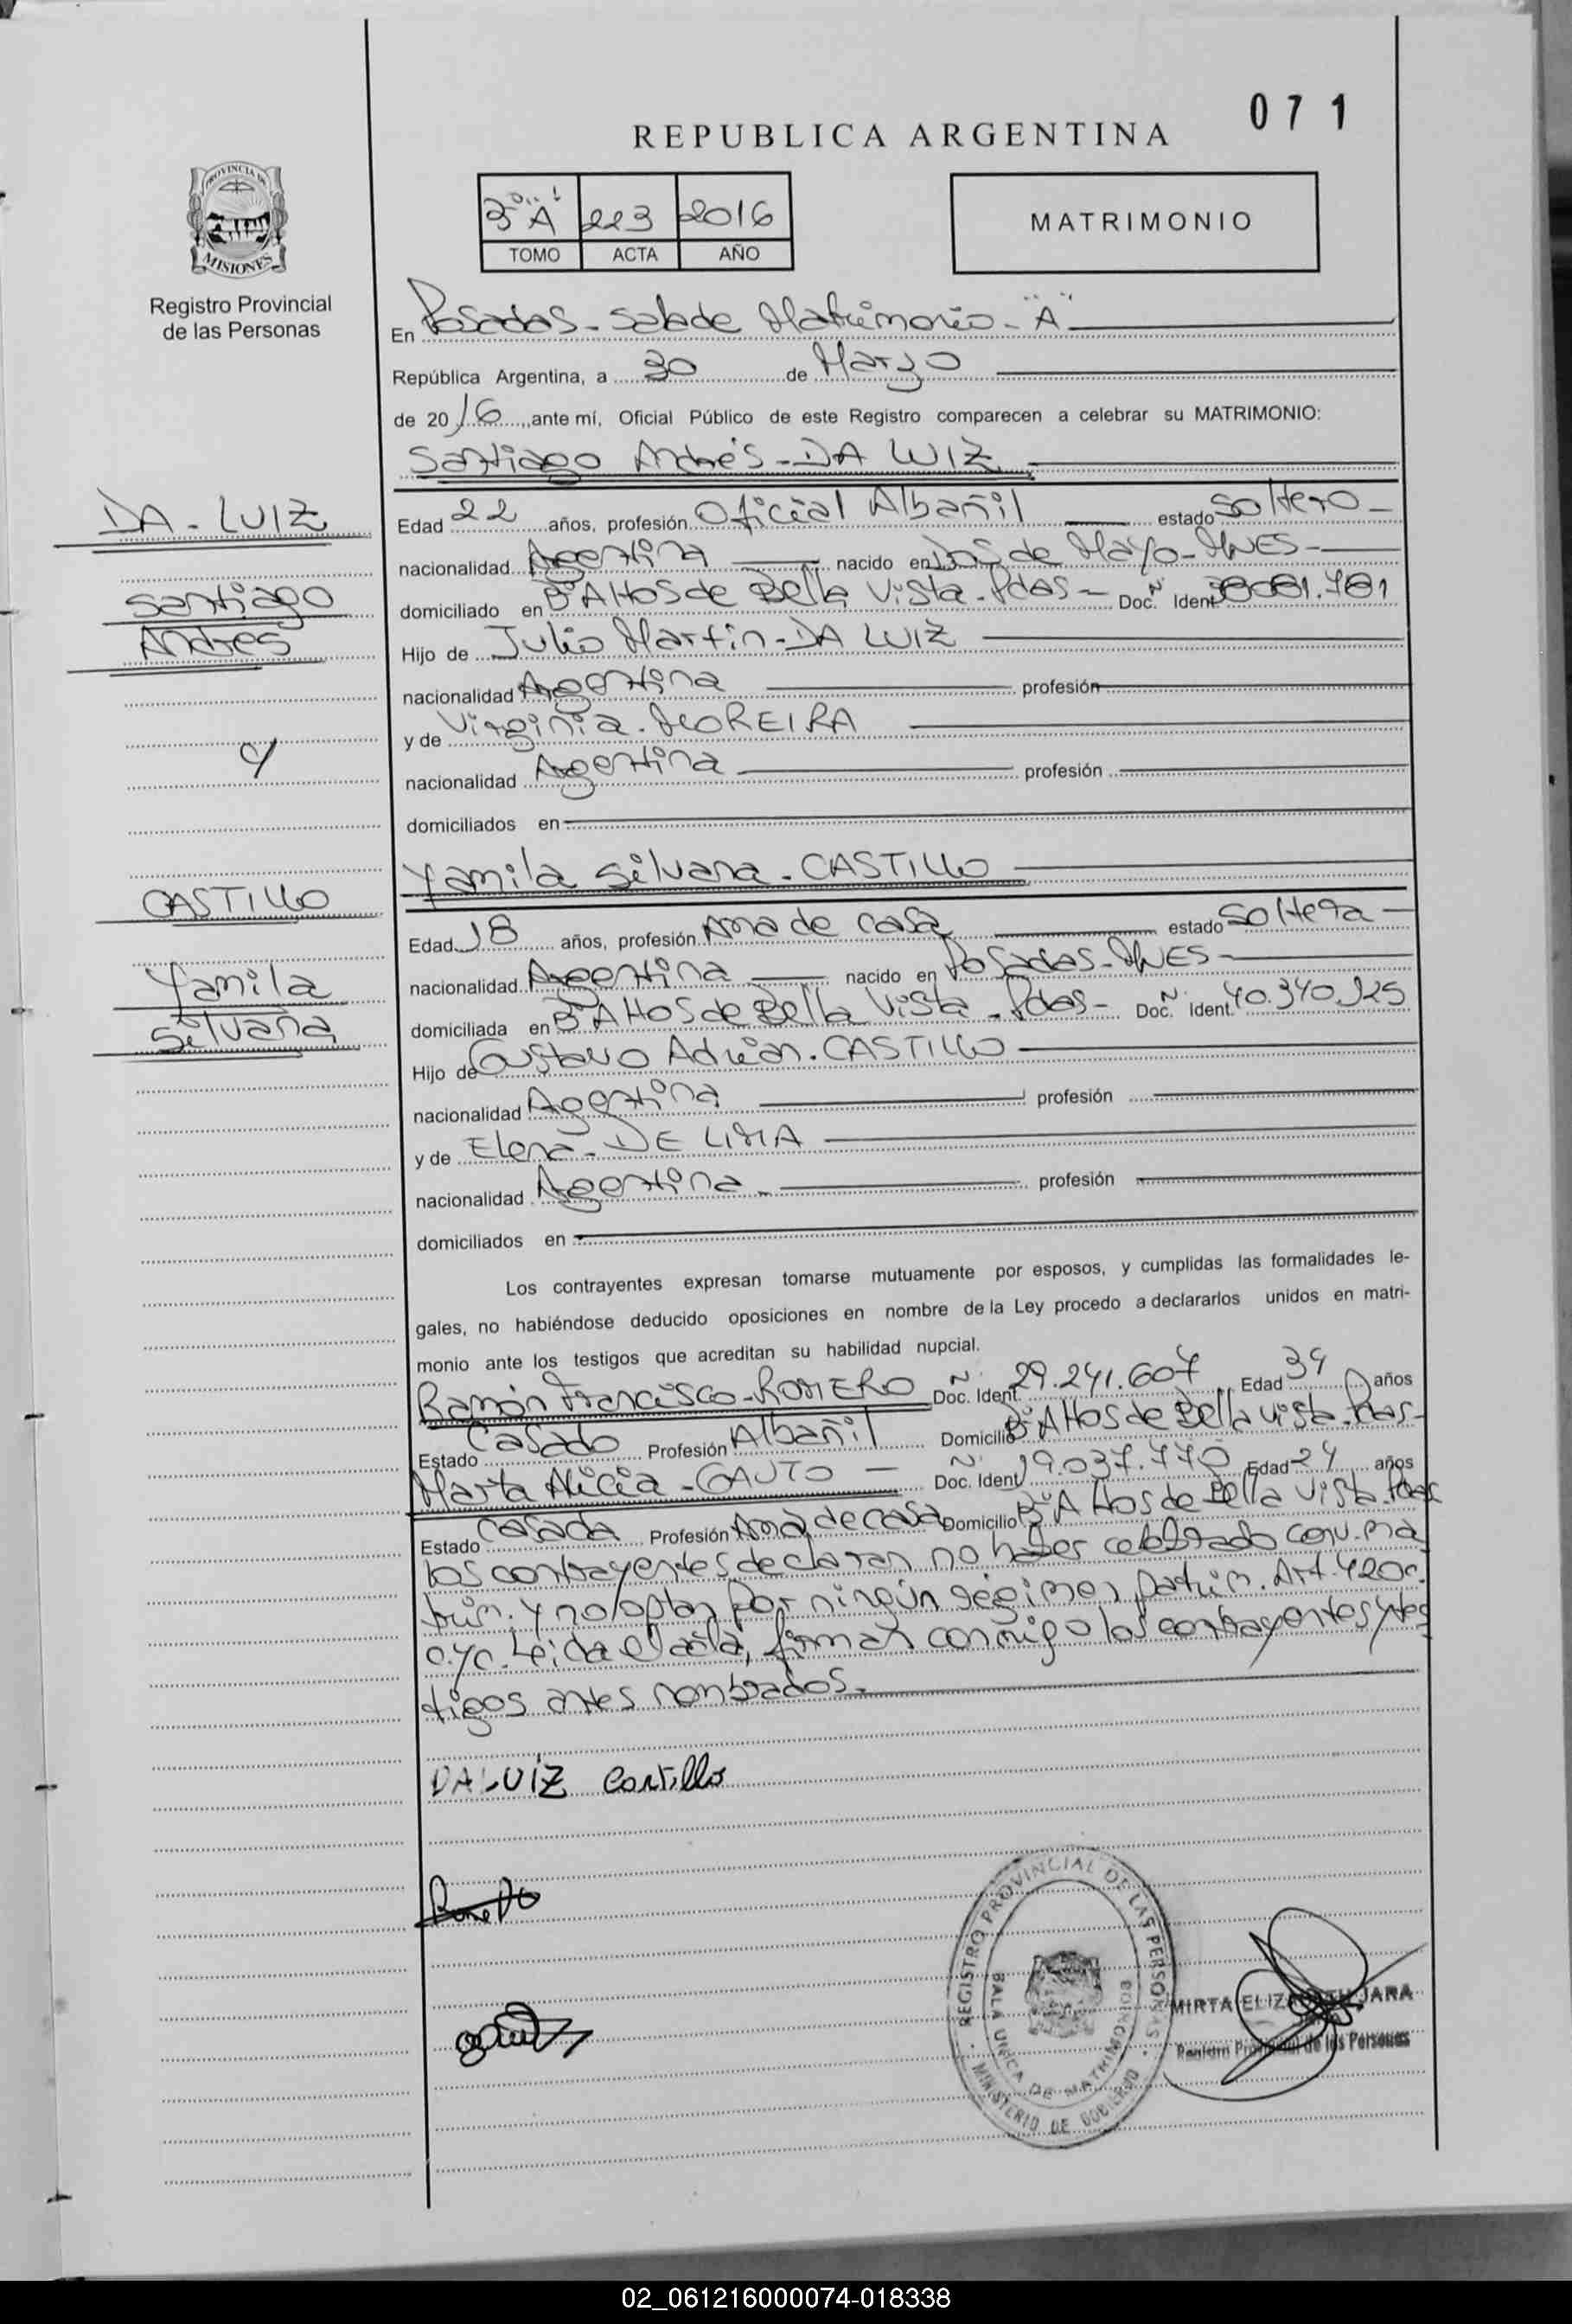 071
REPUBLICA ARGENTINA
3º "A" 223 2016
TOMO ACTA AÑO
MATRIMONIO
PROVINCIA DE
MISIONES
Registro Provincial
de las Personas
En Posadas - Sala de Matrimonio - "A"
República Argentina, a 30 de Marzo
de 2016, ante mí, Oficial Público de este Registro comparecen a celebrar su MATRIMONIO:
Santiago Andrés - DA LUIZ
DA - LUIZ
Santiago
Andrés
c/
CASTILLO
Yamila
Silvana
Edad 22 años, profesión Oficial Albañil estado Soltero -
nacionalidad Argentina nacido en Dos de Mayo - MNES -
domiciliado en Bº Altos de Bella Vista - Pdas - Doc. Ñ Ident. 781
Hijo de Julio Martin - DA LUIZ
nacionalidad Argentina profesión
y de Virginia - MOREIRA
nacionalidad Argentina profesión
domiciliados en
Yamila Silvana - CASTILLO
Edad 18 años, profesión Ama de casa estado Soltera -
nacionalidad Argentina nacido en Posadas - MNES -
domiciliada en Bº Altos de Bella Vista - Pdas - Doc. Ñ Ident. 40.340.925
Hijo de Gustavo Adrián - CASTILLO
nacionalidad Argentina profesión
y de Elena - DE LIMA
nacionalidad Argentina - profesión
domiciliados en
Los contrayentes expresan tomarse mutuamente por esposos, y cumplidas las formalidades le-
gales, no habiéndose deducido oposiciones en nombre de la Ley procedo a declararlos unidos en matri-
monio ante los testigos que acreditan su habilidad nupcial.
Ramón Francisco - ROMERO Doc. Ñ Ident. 29.241.607 Edad 34 años
Estado Casado Profesión Albañil Domicilio Bº Altos de Bella Vista - Pdas -
Marta Alicia - GAUTO - Doc. Ñ Ident. 19.037.770 Edad 24 años
Estado Casada Profesión Ama de casa Domicilio Bº Altos de Bella Vista - Pdas
Los contrayentes declaran no haber celebrado conv. ma
trim. y no optan por ningún régimen patrim. Art. 420 c.
c. y c. Leída el acta, firman conmigo los contrayentes y tes
tigos antes nombrados.
DA LUIZ Castillo
REGISTRO PROVINCIAL DE LAS PERSONAS
MINISTERIO DE GOBIERNO
UNICA DE MATRIMONIOS
MIRTA ELIZABETH JARA
Registro Provincial de las Personas
02_061216000074-018338